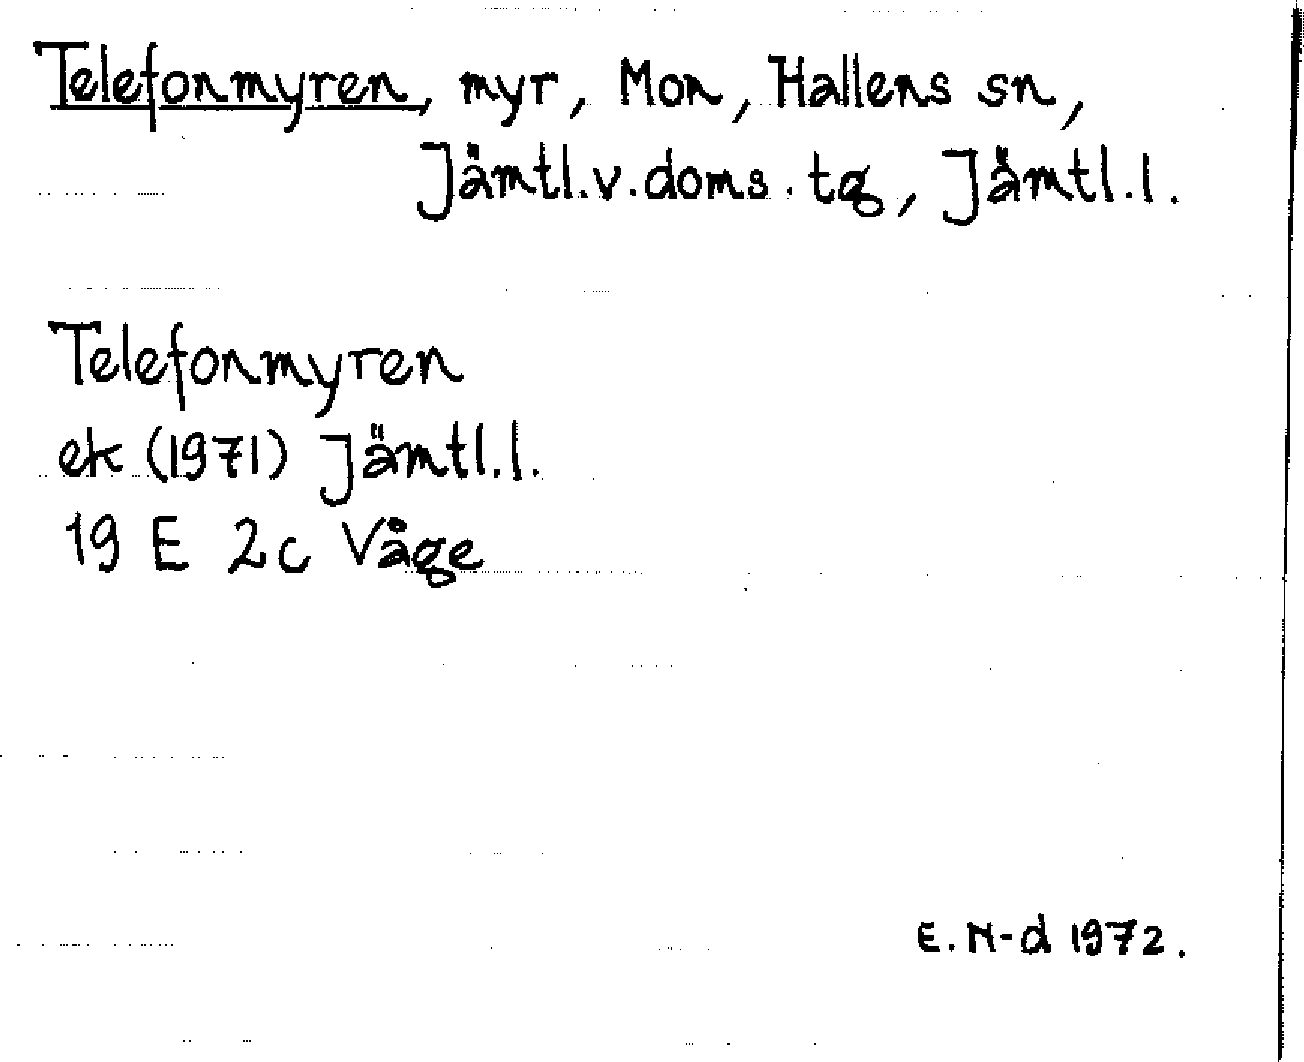 Telefonmyren, myr, Mon, Hallens sn,
Jämtl.v.doms.tg, Jämtl.l.
Telefonmyren
ek (1971) Jämtl.l.
19 E 2c Våge
E. N-d 1972.